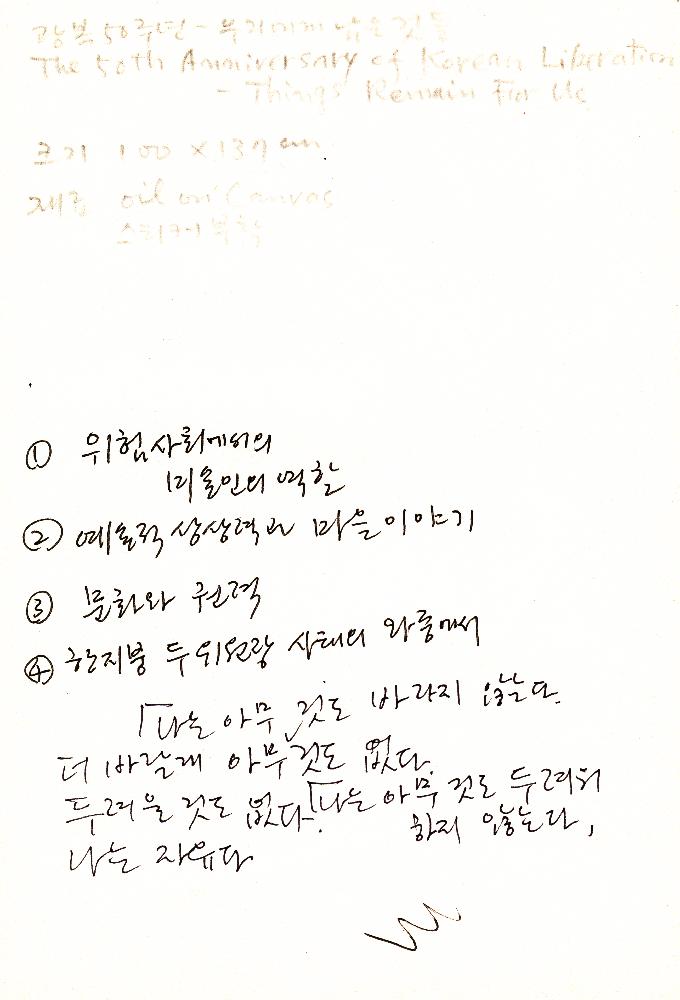 광복 50주년 - 우리에게 남은 것들
The 50th Anniversary of Korean Liberation
- Things Remain For Us
크기 100 x 137 cm
재료 oil on Canvas
① 위험사회에서의
미술인의 역할
② 예술적 상상력과 마을이야기
③ 문화와 권력
④ 한지붕 두위원장 사태의 와중에서
「나는 아무 것도 바라지 않는다.
더 바랄래 아무것도 없다.
두려울 것도 없다. 「나는 아무 것도 두려워
하지 않는다,
나는 자유다